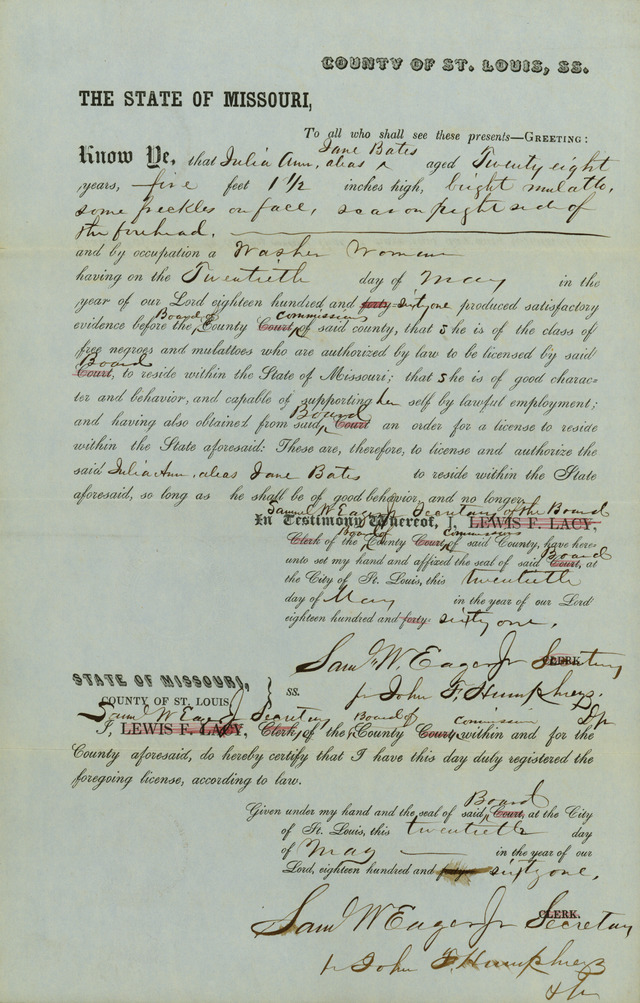 COUNTY OF ST. LOUIS, SS.
THE STATE OF MISSOURI,
To all who shall see these presents—GREETING:
Jane Bates
Know Ye, that Julia Ann, alias ^ aged Twenty eight
years, five feet 1 1/2 inches high, bright mulatto,
some freckles on face, scar on right side of
the forehead,
and by occupation a Washer Woman
having on the Twentieth day of May in the
year of our Lord eighteen hundred and forty sixty one produced satisfactory
Board of commission
evidence before the County Court of said county, that she is of the class of
free negroes and mulattoes who are authorized by law to be licensed by said
Board
Court, to reside within the State of Missouri; that she is of good charac-
ter and behavior, and capable of supporting her self by lawful employment;
Board
and having also obtained from said Court an order for a license to reside
within the State aforesaid: These are, therefore, to license and authorize the
said Julia Ann, alias Jane Bates to reside within the State
aforesaid, so long as he shall be of good behavior, and no longer.
Samuel W Eager Jr Secretary of the Board
In Testimony Whereof, I, LEWIS F. LACY
Board of commission
Clerk of the County Court of said County, have here-
Board
unto set my hand and affixed the seal of said Court, at
the City of St. Louis, this twentieth
day of May in the year of our Lord
eighteen hundred and forty sixty one.
Saml W. Eager Jr CLERK. Secretary
STATE OF MISSOURI,
COUNTY OF ST. LOUIS } ss.
John F. Humphreys.
Saml W Eager Jr Secretary Board of commission
I, LEWIS F. LACY, Clerk of the County Court within and for the
County aforesaid, do hereby certify that I have this day duly registered the
foregoing license, according to law.
Board
Given under my hand and the seal of said Court, at the City
of St. Louis, this twentieth day
of May in the year of our
Lord, eighteen hundred and sixty one.
CLERK.
Saml W Eager Jr Secretary
John F. Humphreys